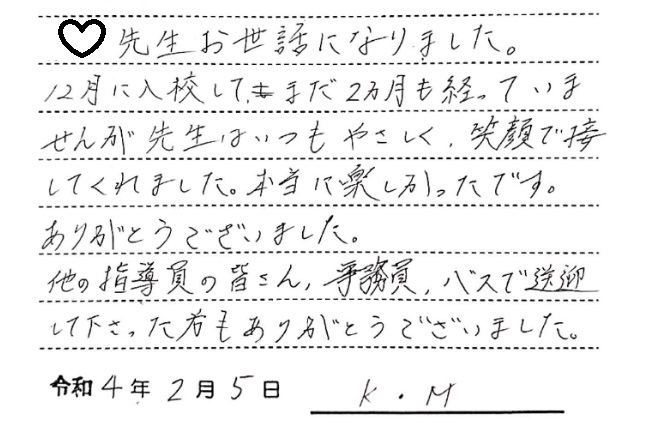 ♡先生お世話になりました。
12月に入校して、まだ2カ月も経っていま
せんが先生はいつもやさしく、笑顔で接
してくれました。本当に楽しかったです。
ありがとうございました。
他の指導員の皆さん、事務員、バスで送迎
して下さった方もありがとうございました。
令和4年2月5日 K.M